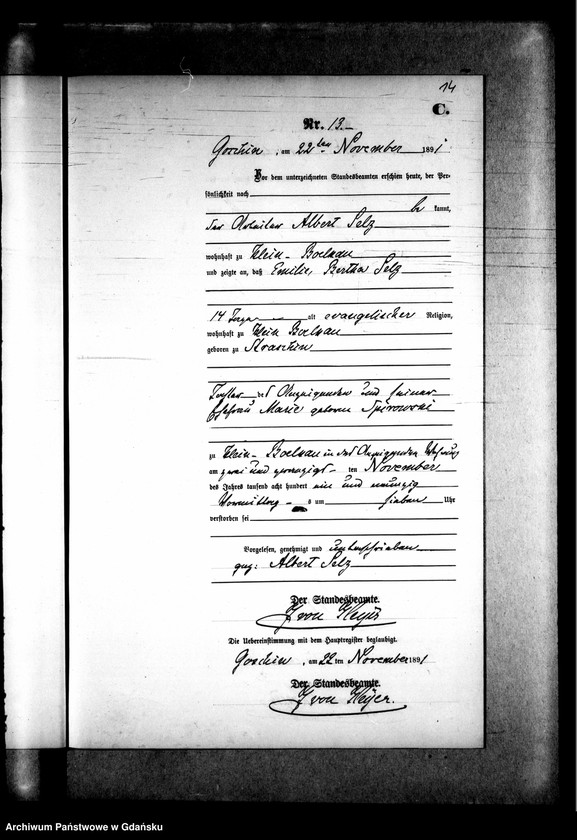 14
C.
Nr. 13.
Goschin, am 22ten November 1891
Vor dem unterzeichneten Standesbeamten erschien heute, der Per-
sönlichkeit nach
be kannt,
der Arbeiter Albert Selz
wohnhaft zu Klein-Boelkau
und zeigte an, daß Emilie, Bertha Selz
14 Tage alt evangelischer Religion,
wohnhaft zu Klein Boelkau
geboren zu Straschin
Tochter des Anzeigenden und seiner
Ehefrau Marie geboren Spirowski
zu Klein-Boelkau in des Anzeigenden Wohnung
am zwei und zwanzigs- ten November
des Jahres tausend acht hundert ein und neunzig
Vormittag- s um sieben Uhr
verstorben sei
Vorgelesen, genehmigt und unterschrieben
gez: Albert Selz
Der Standesbeamte.
J von Heyer
Die Uebereinstimmung mit dem Hauptregister beglaubigt.
Goschin, am 22 ten November 1891
Der Standesbeamte.
J von Heyer.
Archiwum Państwowe w Gdańsku